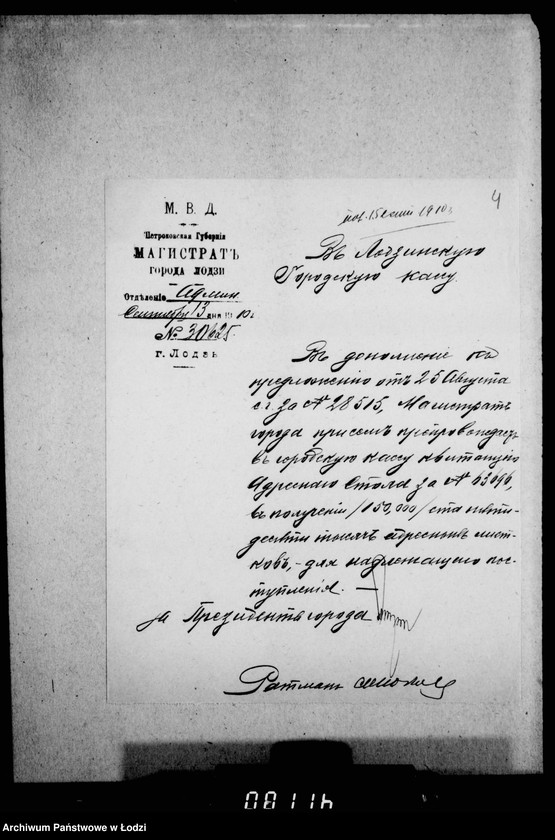 4
пол. 15 сент 1910 г
М. В. Д.
Петроковская Губернія
МАГИСТРАТЪ
ГОРОДА ЛОДЗИ
Отдѣленіе Админ
Сентября 13 дня 1910 г.
№ 30625.
г. Лодзь
Въ Лодзинскую
Городскую кассу.
Въ дополненіе къ
предложенію отъ 25 Августа
с. г. за № 28515, Магистратъ
города при семъ препровождаетъ
въ городскую кассу квитанцію
Адреснаго Стола за № 63096,
въ полученіи /150,000/ ста пяти-
десяти тысячъ адресныхъ лист-
ковъ, - для надлежащаго пос-
тупленія. —
за Президента города
Ратманъ
081116
Archiwum Państwowe w Łodzi